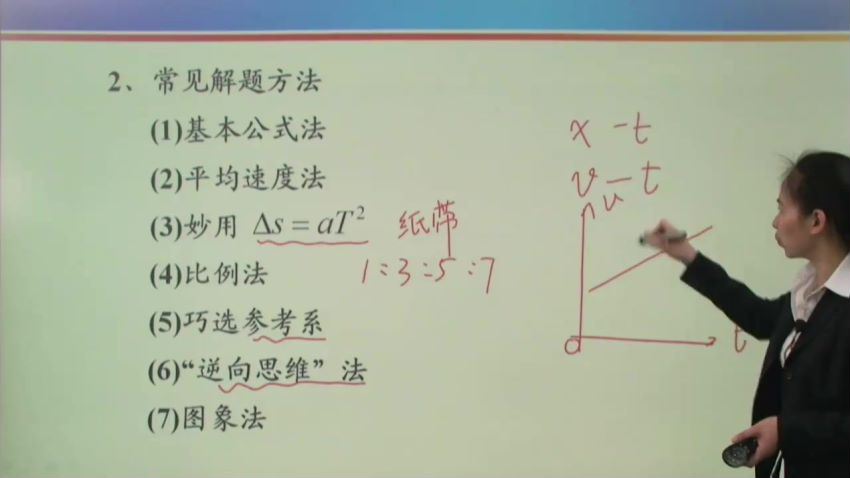 2、常见解题方法
(1)基本公式法
(2)平均速度法
(3)妙用 Δs = aT² 纸带
(4)比例法 1:3:5:7
(5)巧选参考系
(6)“逆向思维”法
(7)图象法
x - t
v - t
v
O
t